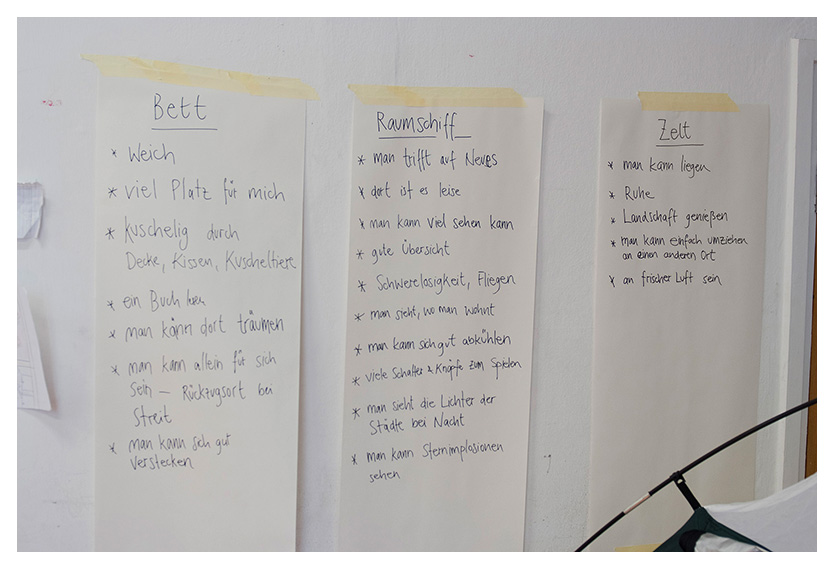 Bett
* Weich
* viel Platz für mich
* Kuschelig durch
Decke, Kissen, Kuscheltiere
* ein Buch lesen
* man kann dort träumen
* man kann allein für sich
sein – Rückzugsort bei
Streit
* man kann sich gut
verstecken
Raumschiff
* man trifft auf Neues
* dort ist es leise
* man kann viel sehen kann
* gute Übersicht
* Schwerelosigkeit, Fliegen
* man sieht, wo man wohnt
* man kann sich gut abkühlen
* viele Schalter & Knöpfe zum Spielen
* man sieht die Lichter der
Städte bei Nacht
* man kann Sternimplosionen
sehen
Zelt
* man kann liegen
* Ruhe
* Landschaft genießen
* man kann einfach umziehen
an einen anderen Ort
* an frischer Luft sein